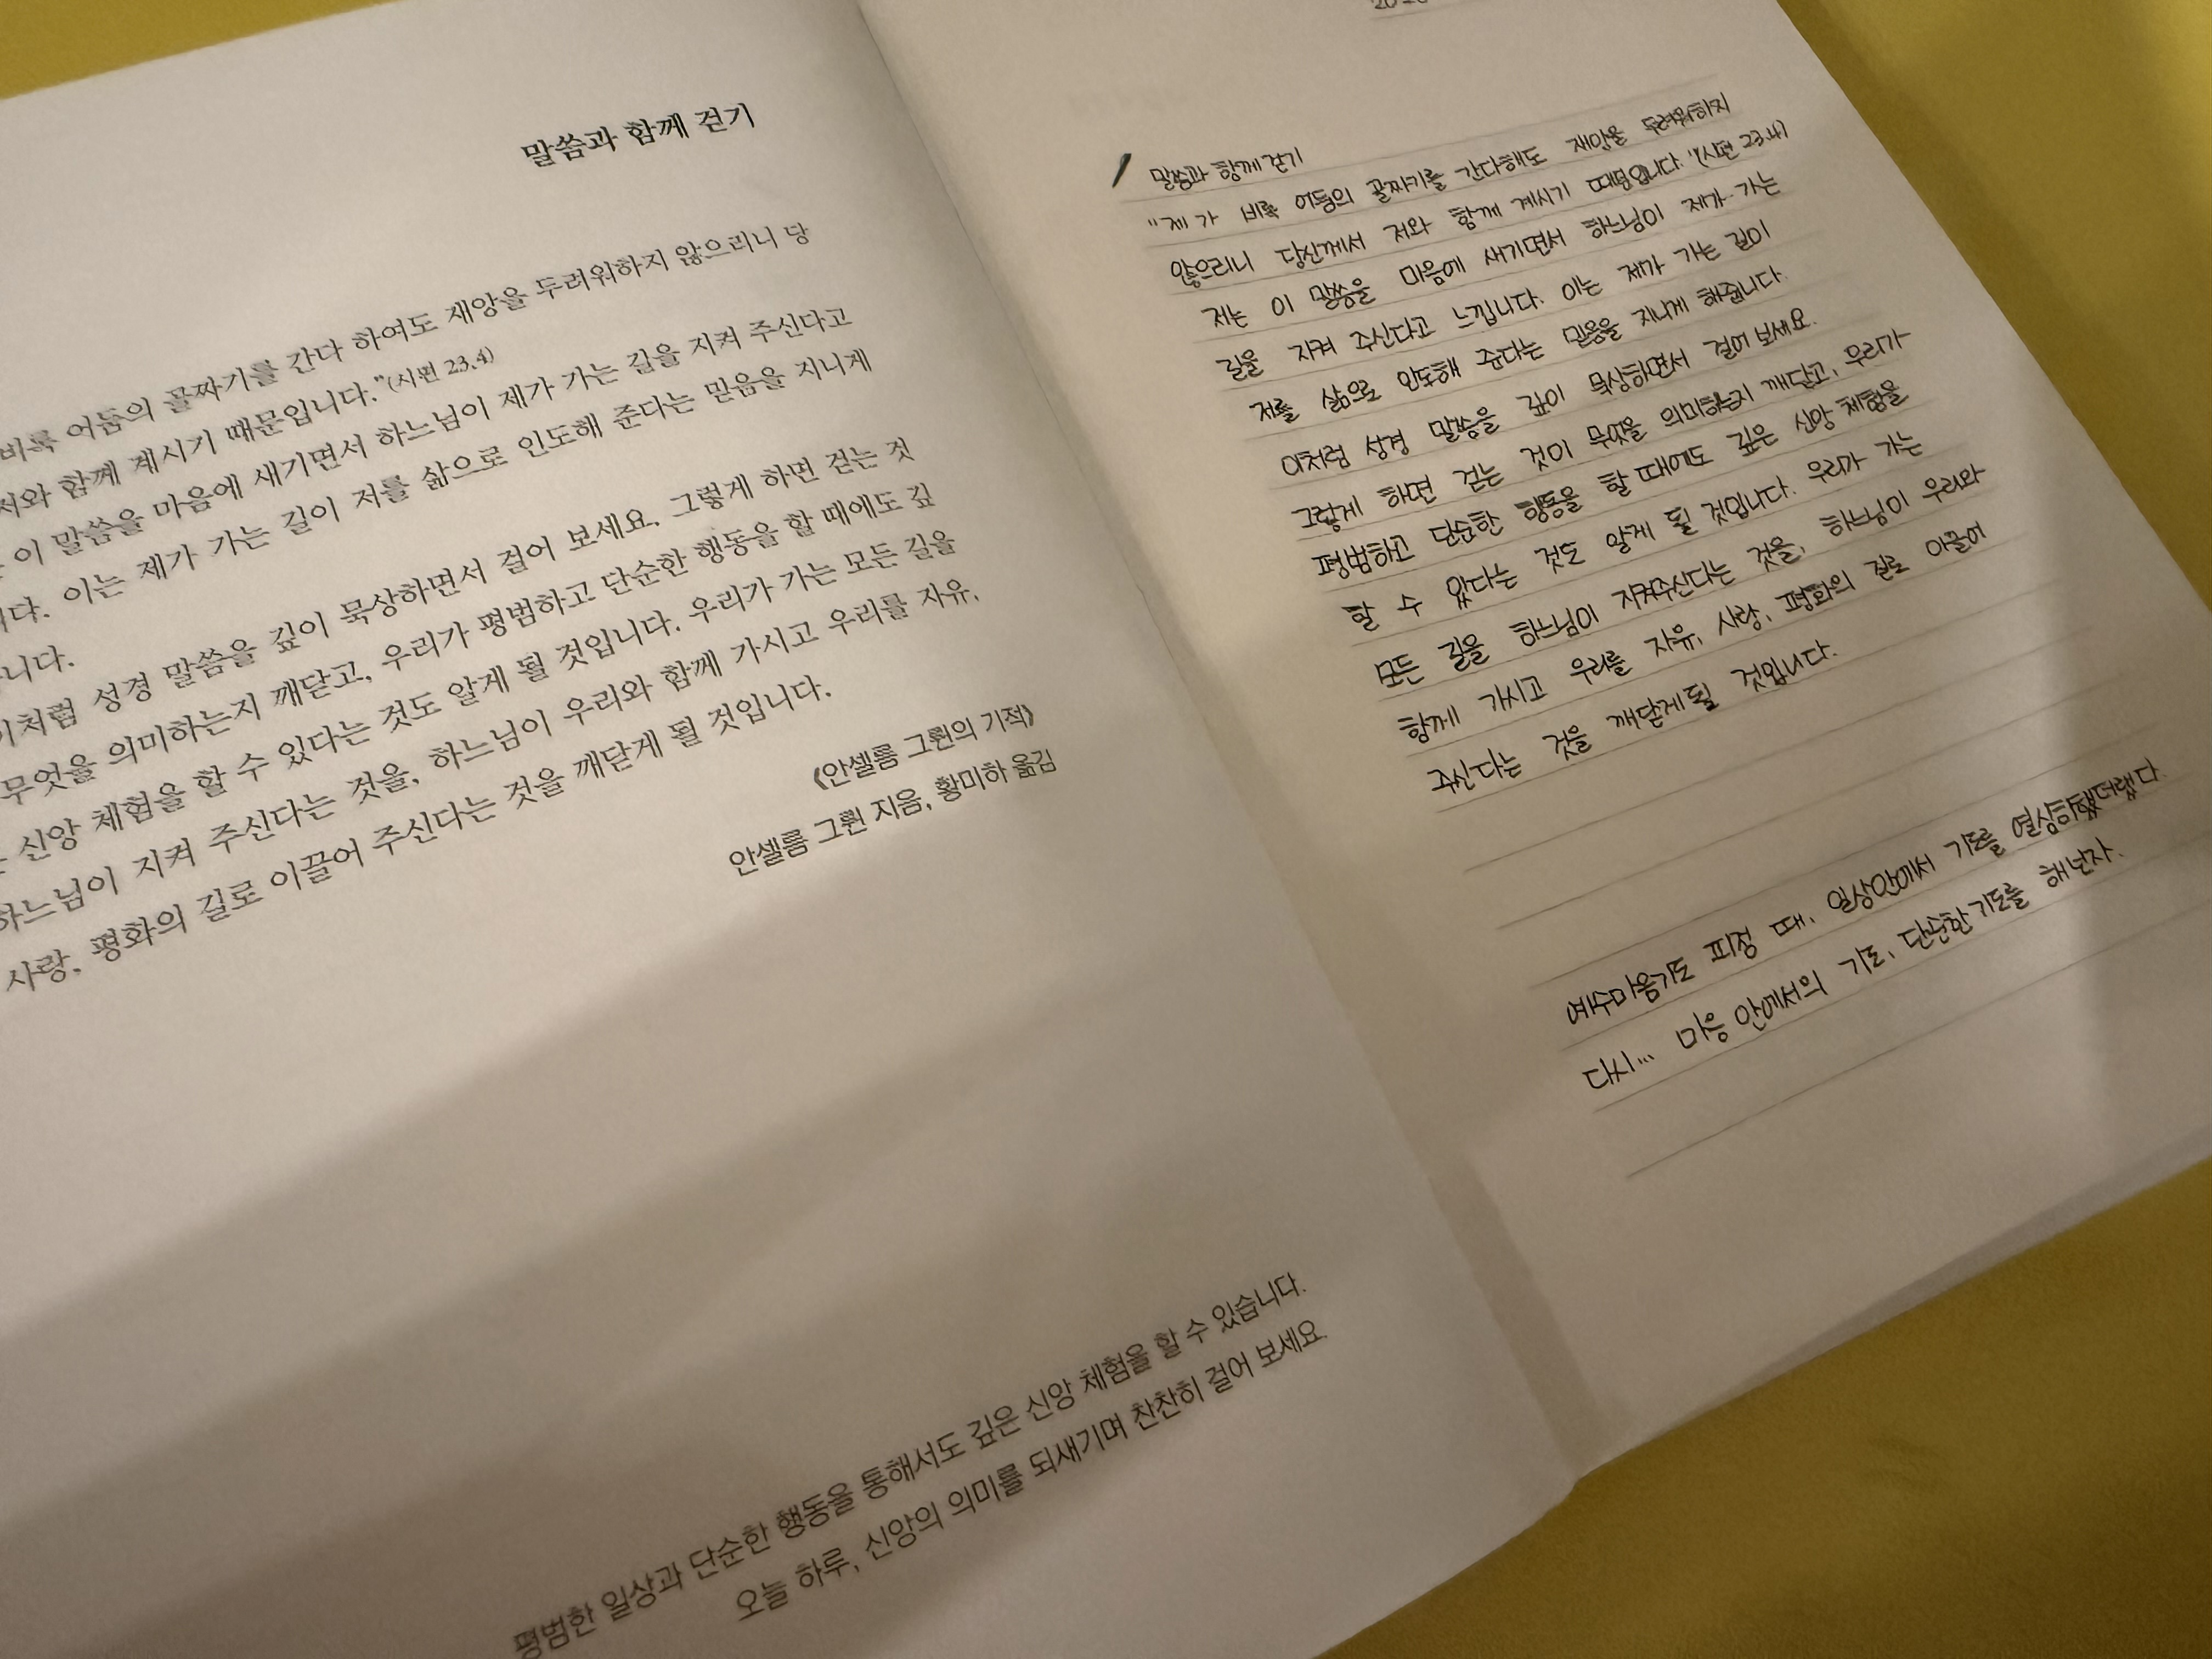 말씀과 함께 걷기
비록 어둠의 골짜기를 간다 하여도 재앙을 두려워하지 않으리니 당
저와 함께 계시기 때문입니다.”(시편 23,4)
이 말씀을 마음에 새기면서 하느님이 제가 가는 길을 지켜 주신다고
니다. 이는 제가 가는 길이 저를 삶으로 인도해 준다는 믿음을 지니게
니다.
이처럼 성경 말씀을 깊이 묵상하면서 걸어 보세요. 그렇게 하면 걷는 것
무엇을 의미하는지 깨닫고, 우리가 평범하고 단순한 행동을 할 때에도 깊
신앙 체험을 할 수 있다는 것도 알게 될 것입니다. 우리가 가는 모든 길을
하느님이 지켜 주신다는 것을, 하느님이 우리와 함께 가시고 우리를 자유,
사랑, 평화의 길로 이끌어 주신다는 것을 깨닫게 될 것입니다.
《안셀름 그륀의 기적》
안셀름 그륀 지음, 황미하 옮김
평범한 일상과 단순한 행동을 통해서도 깊은 신앙 체험을 할 수 있습니다.
오늘 하루, 신앙의 의미를 되새기며 찬찬히 걸어 보세요.
말씀과 함께 걷기
"제가 비록 어둠의 골짜기를 간다해도 재앙을 두려워하지
않으리니 당신께서 저와 함께 계시기 때문입니다."(시편 23.4)
저는 이 말씀을 마음에 새기면서 하느님이 제가 가는
길을 지켜 주신다고 느낍니다. 이는 제가 가는 길이
저를 삶으로 인도해 준다는 믿음을 지니게 해줍니다.
이처럼 성경 말씀을 깊이 묵상하면서 걸어 보세요.
그렇게 하면 걷는 것이 무엇을 의미하는지 깨닫고, 우리가
평범하고 단순한 행동을 할 때에도 깊은 신앙 체험을
할 수 있다는 것도 알게 될 것입니다. 우리가 가는
모든 길을 하느님이 지켜주신다는 것을, 하느님이 우리와
함께 가시고 우리를 자유, 사랑, 평화의 길로 이끌어
주신다는 것을 깨닫게 될 것입니다.
예수마음기도 피정 때, 일상안에서 기도를 열심히했더랬다.
다시... 마음 안에서의 기도, 단순한 기도를 해 보자.